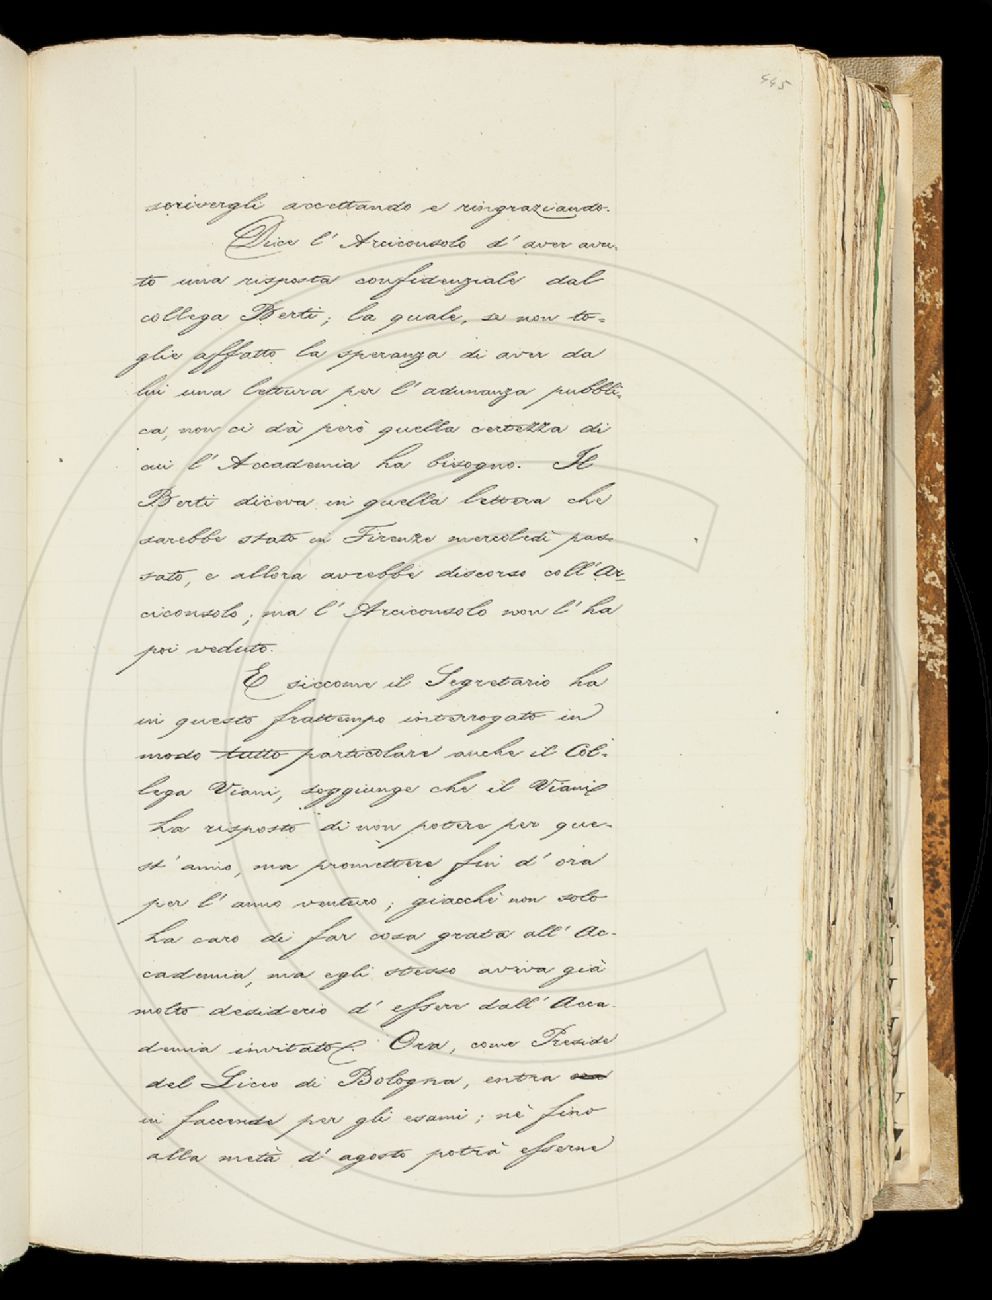 445
scrivergli accettando e ringraziando.
Dice l' Arciconsolo d' aver avu-
to una risposta confidenziale dal
collega Berti; la quale, se non to-
glie affatto la speranza di aver da
lui una lettura per l' adunanza pubbli-
ca, non ci dà però quella certezza di
cui l' Accademia ha bisogno. Il
Berti diceva in quella lettera che
sarebbe stato in Firenze mercoledì pas-
sato, e allora avrebbe discorso coll' Ar-
ciconsolo; ma l' Arciconsolo non l' ha
poi veduto.
E siccome il Segretario ha
in questo frattempo interrogato in
modo tutto particolare anche il Col-
lega Viani, soggiunge che il Viani
ha risposto di non potere per que-
st' anno, ma promettere fin d' ora
per l' anno venturo; giacchè non solo
ha caro di far cosa grata all' Ac-
cademia, ma egli stesso aviva già
molto desiderio d' essere dall' Acca-
demia invitato. Ora, come Preside
del Liceo di Bologna, entra
in faccende per gli esami; nè fino
alla metà d' agosto potrà esserne